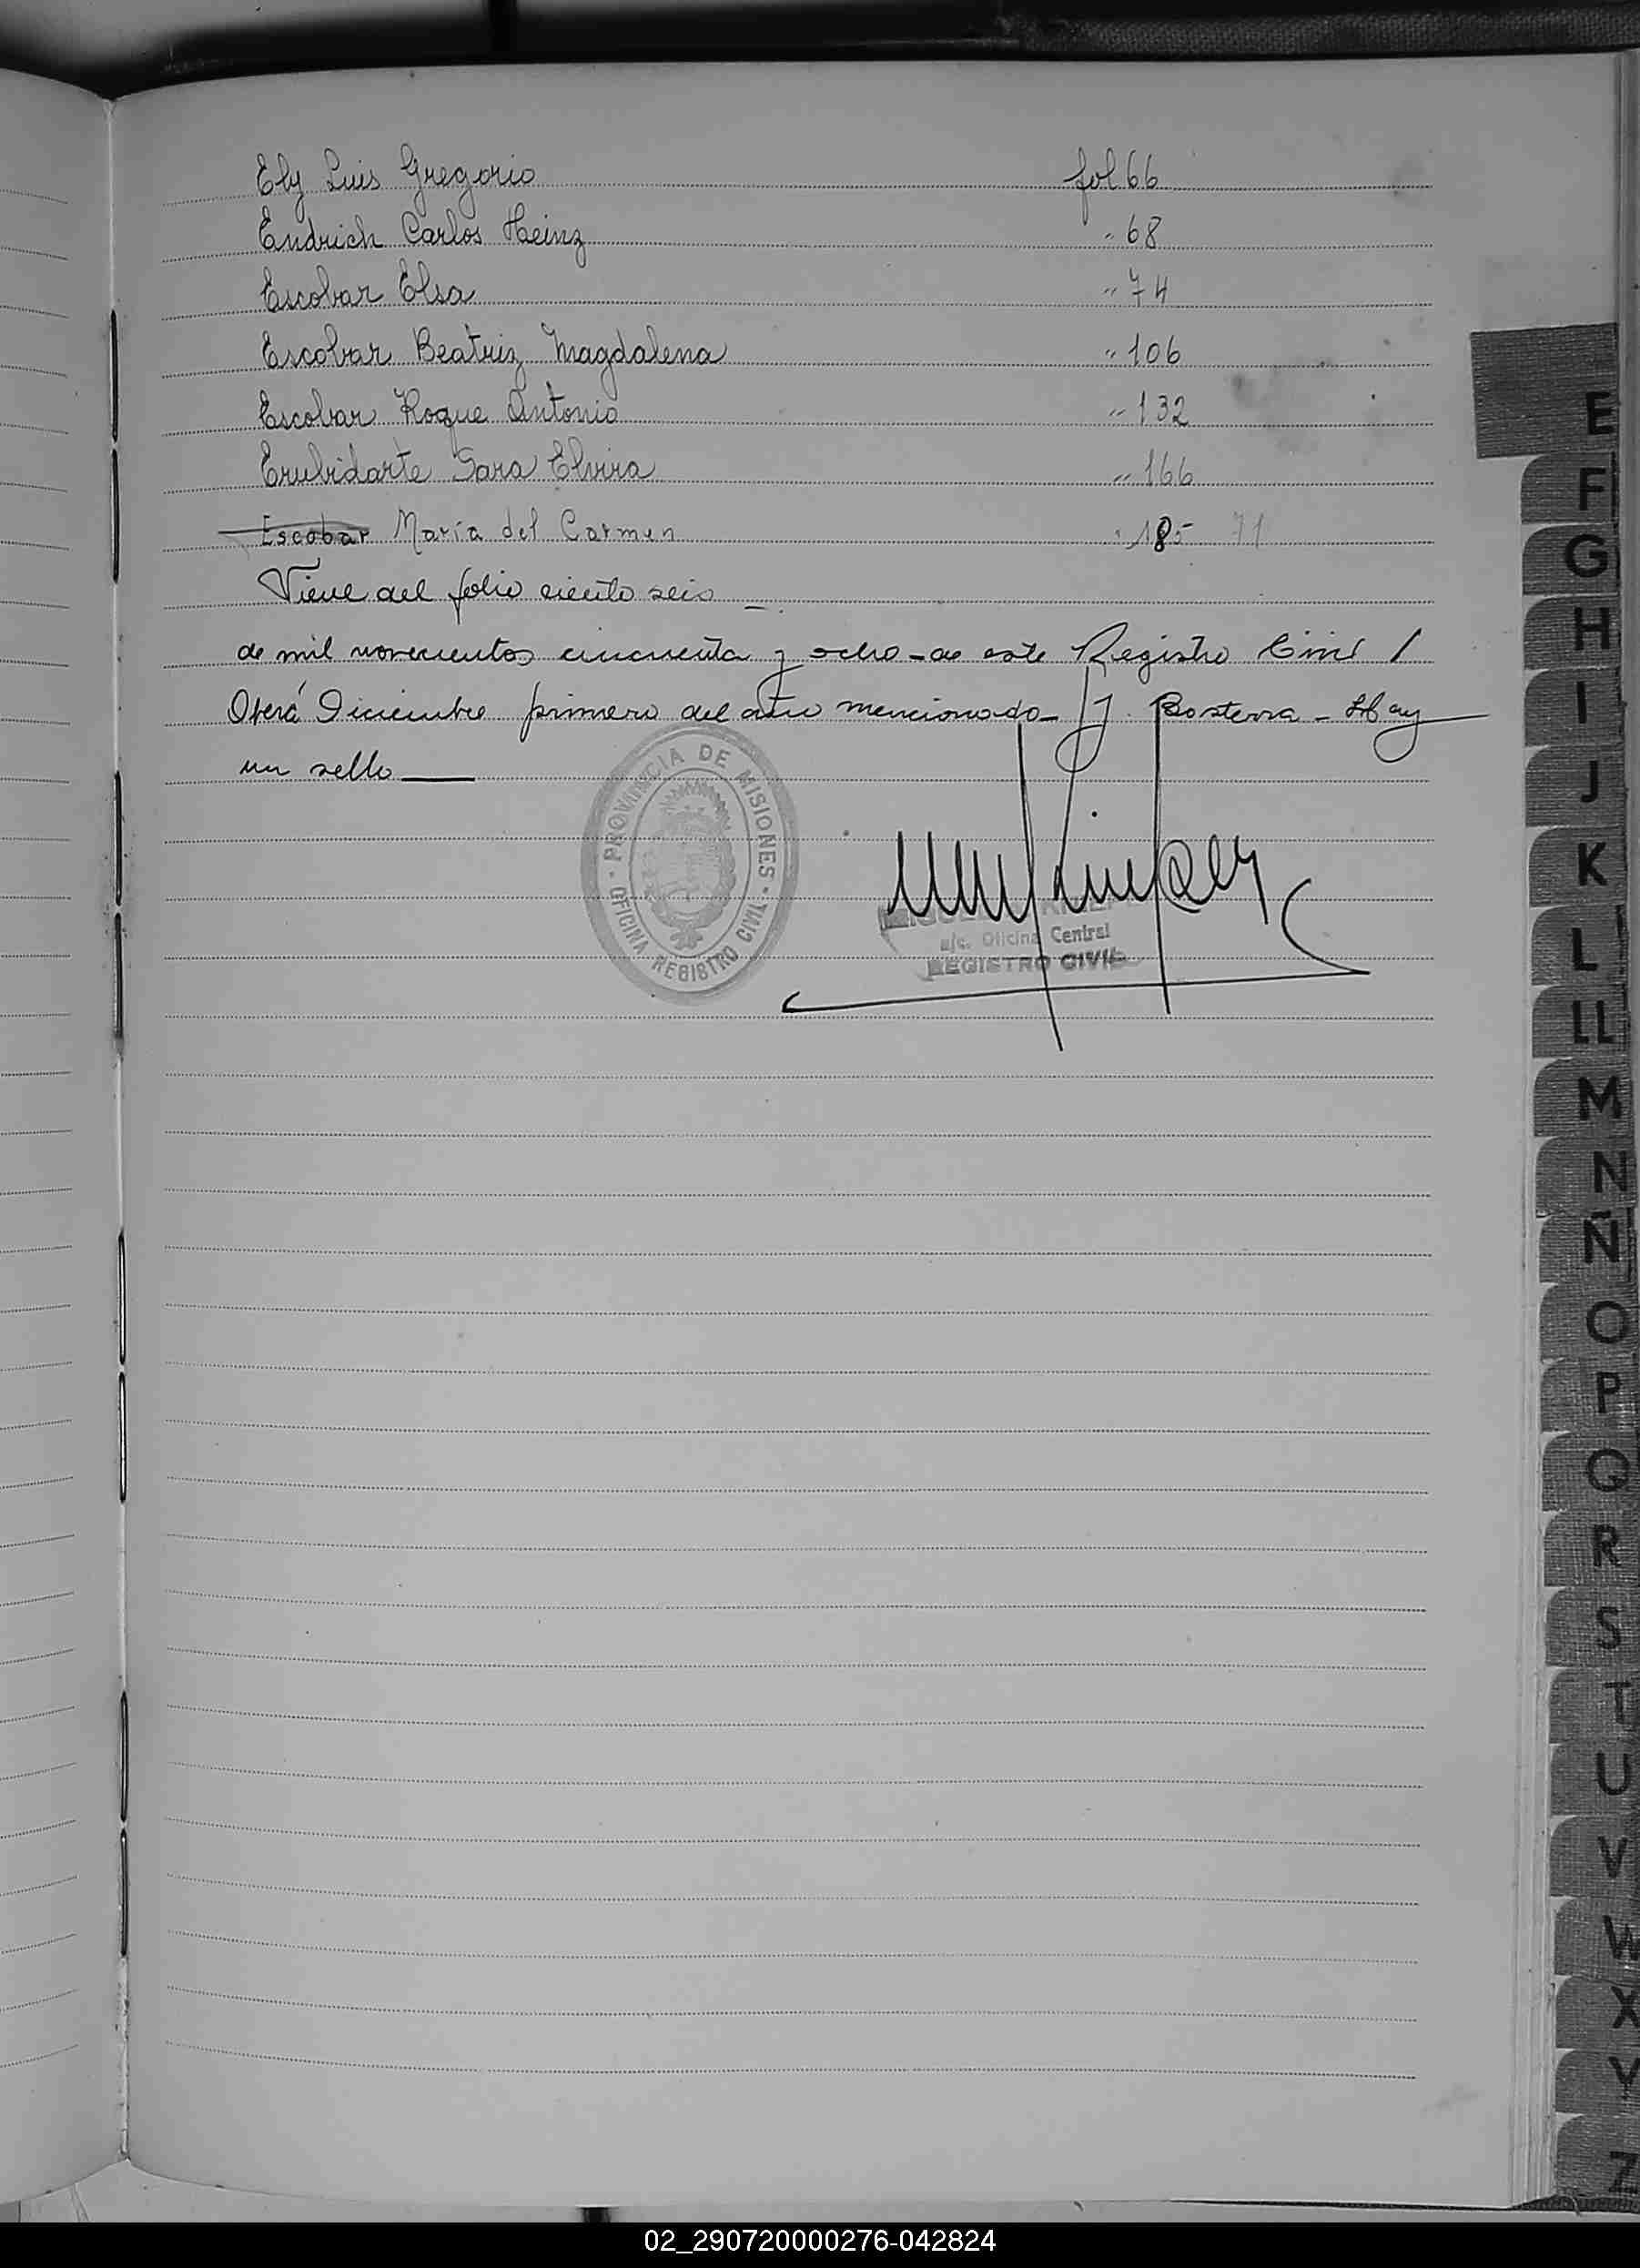 Ely Luis Gregorio fol 66
Endrich Carlos Heinz " 68
Escobar Elsa " 74
Escobar Beatriz Magdalena " 106
Escobar Roque Antonio " 132
Erubidarte Sara Elvira " 166
Escobar María del Carmen " 185 71
Viene del folio ciento seis
de mil novecientos cincuenta y ocho - de este Registro Civil /
Oberá Diciembre primero del año mencionado - J. Basterra - Hay
un sello
PROVINCIA DE MISIONES
OFICINA REGISTRO CIVIL
a/c. Oficina Central
REGISTRO CIVIL
E
F
G
H
I
J
K
L
LL
M
N
Ñ
O
P
Q
R
S
T
U
V
W
X
Y
Z
02_290720000276-042824